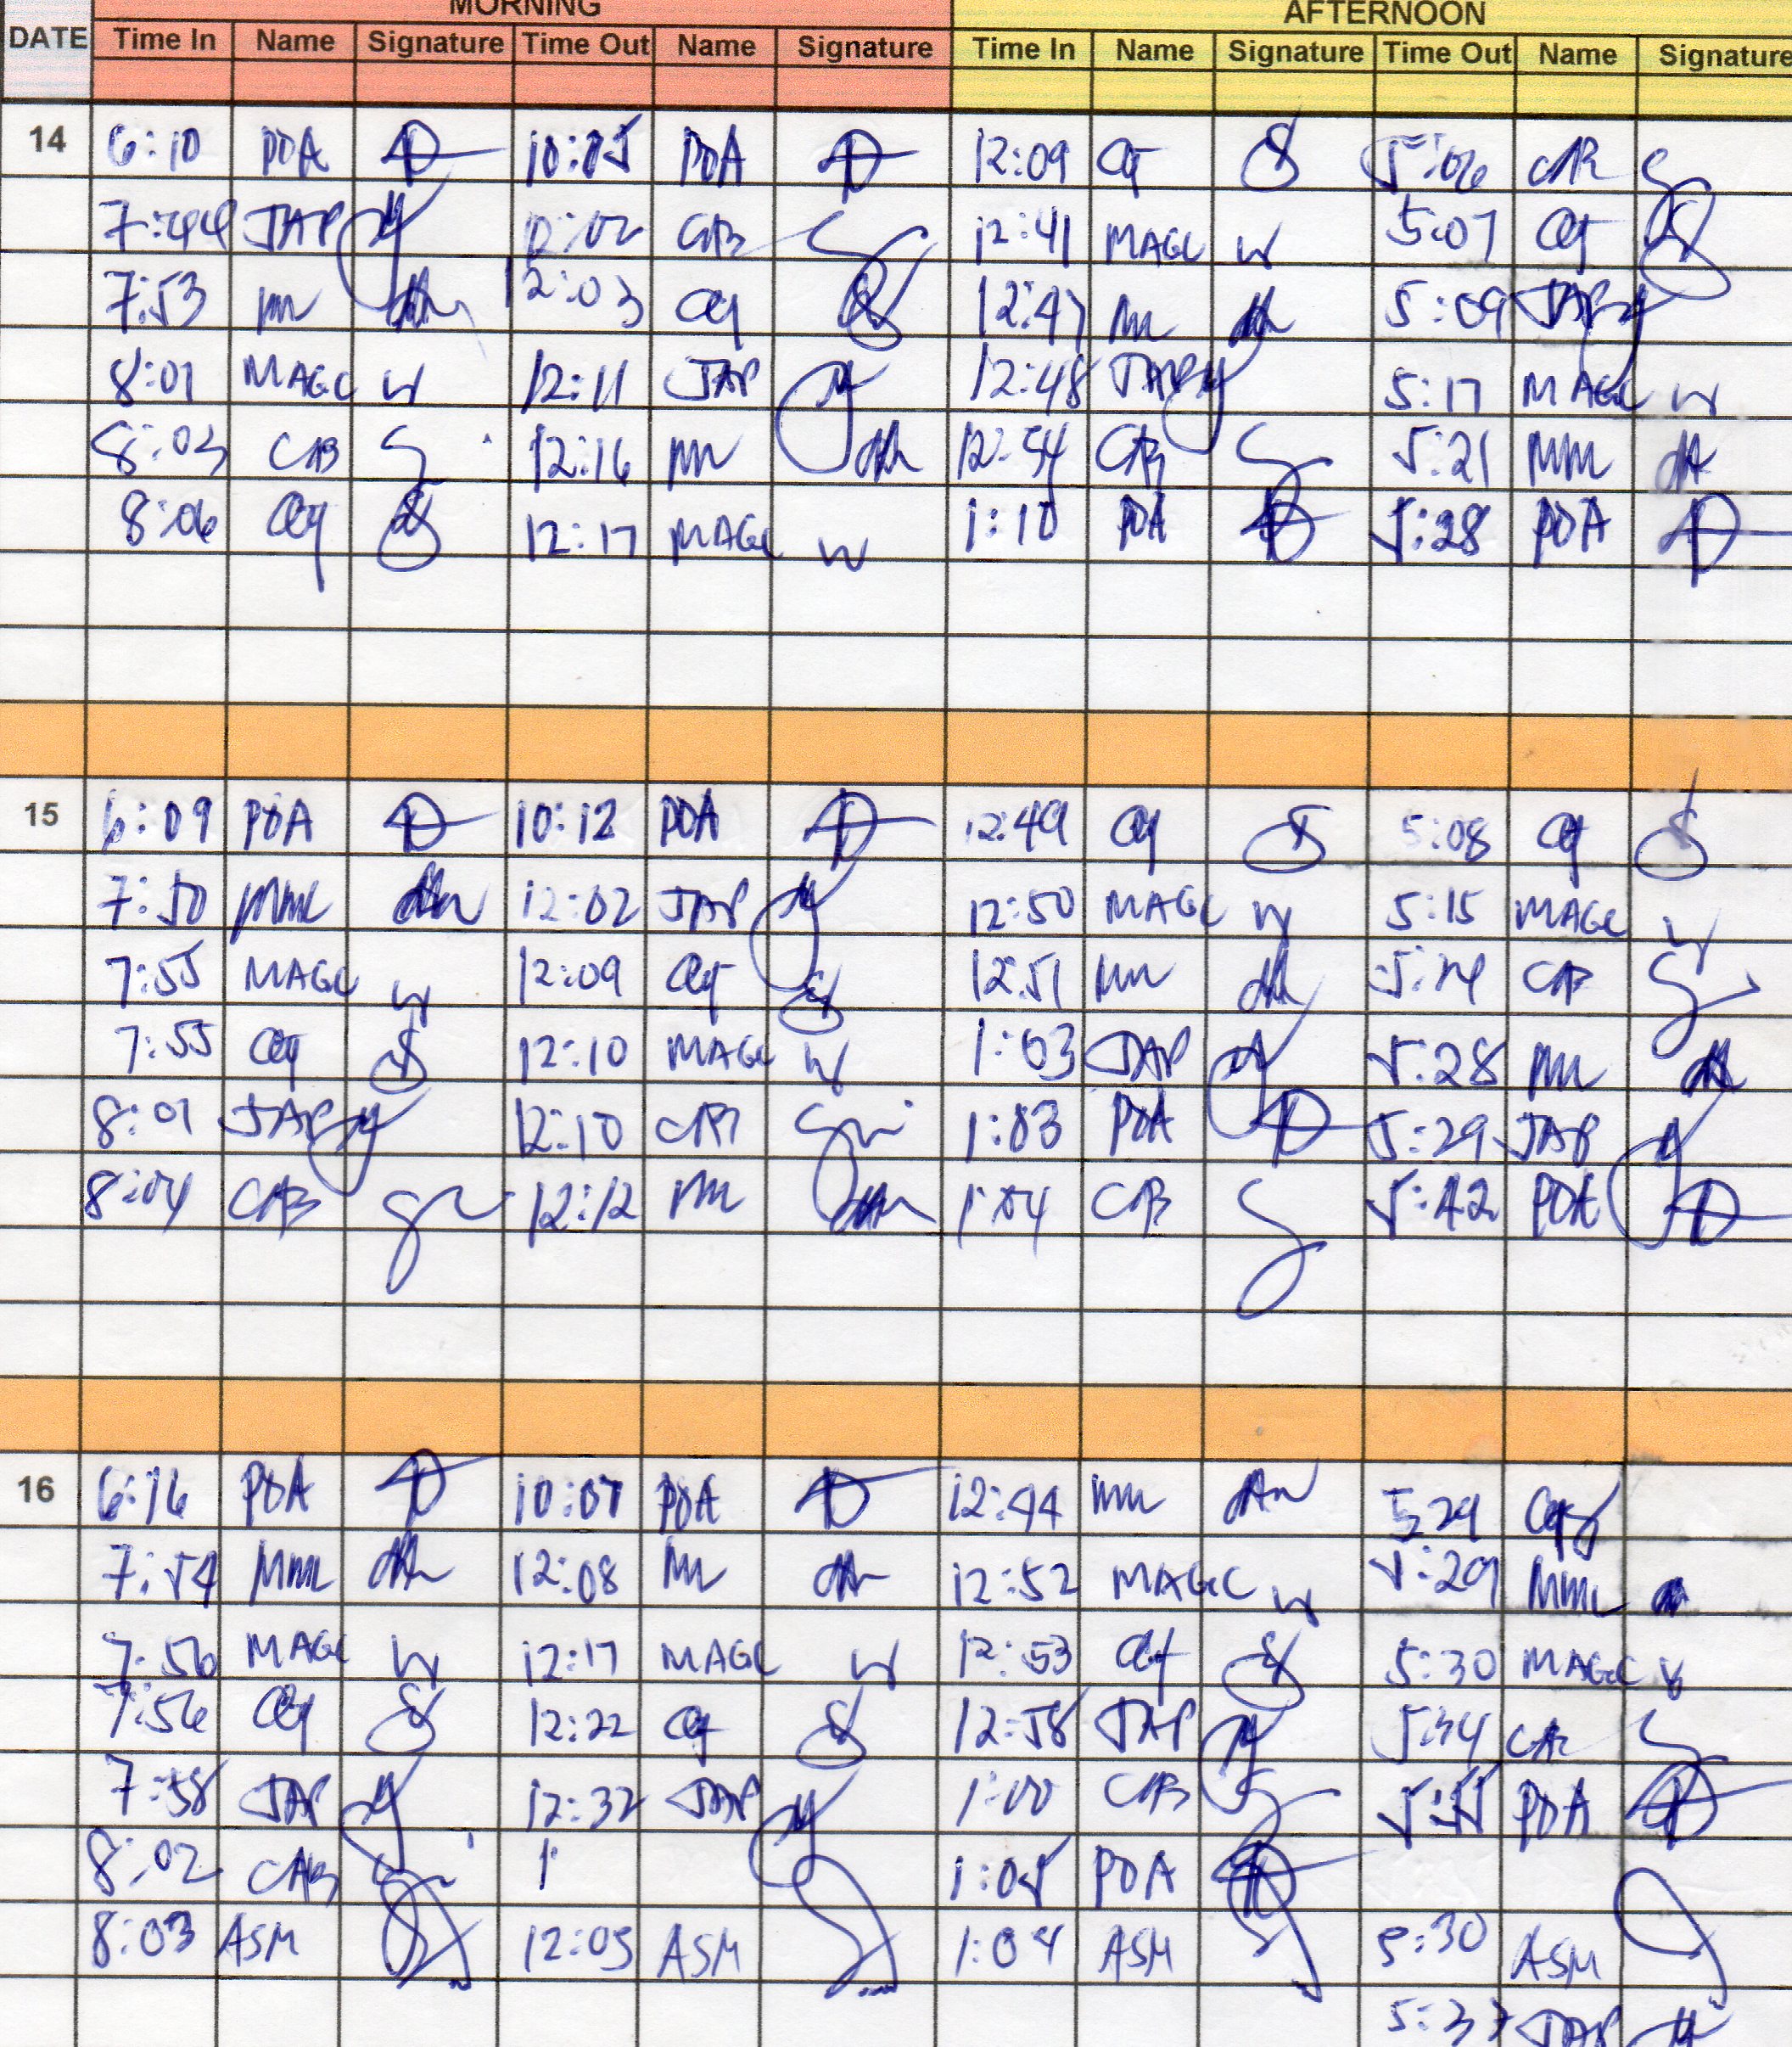 MORNING AFTERNOON
DATE Time In Name Signature Time Out Name Signature Time In Name Signature Time Out Name Signature
14 6:10 PDA 10:05 PDA 12:09 5:06 CAB
7:44 JAP 12:02 CAB 12:41 MAGC 5:07
7:53 12:03 12:47 5:09 JAP
8:01 MAGC 12:11 JAP 12:48 JAP 5:17 MAGC
8:03 CAB 12:16 12:54 CAB 5:21 MM
8:06 12:17 MAGC 1:10 PDA 5:28 PDA
15 6:09 PDA 10:12 PDA 12:49 5:08
7:50 MML 12:02 JAP 12:50 MAGC 5:15 MAGC
7:55 MAGC 12:09 12:51 CAB
7:55 12:10 MAGC 1:03 JAP 5:28
8:01 JAP 12:10 CAB 1:03 PDA 5:29 JAP
8:04 CAB 12:12 1:04 CAB 5:42 PDA
16 6:16 PDA 10:07 PDA 12:44 MM 5:29
7:54 MML 12:08 12:52 MAGC 5:29 MML
7:56 MAGC 12:17 MAGC 12:53 5:30 MAGC
7:56 12:22 12:58 JAP 5:34 CAB
7:58 JAP 12:32 JAP 1:00 CAB PDA
8:02 CAB 1 1:05 PDA
8:03 ASM 12:05 ASM 1:04 ASM 5:30 ASM
5:37 JAP